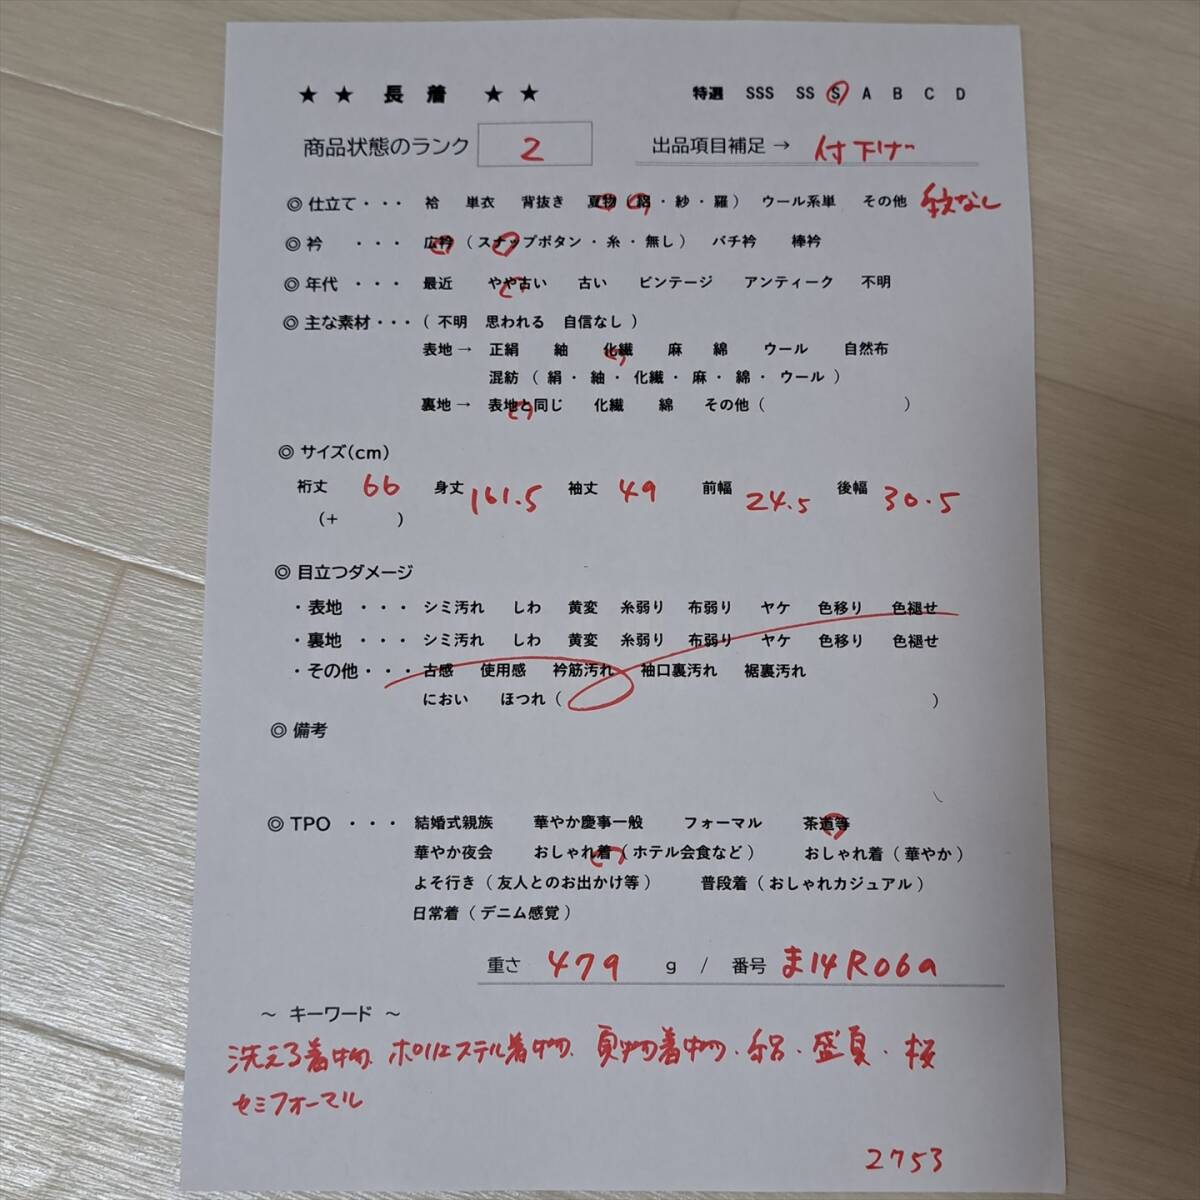 ★ ★ 長 着 ★ ★ 特選 SSS SS S A B C D
商品状態のランク 2 出品項目補足 → 付下げ
◎ 仕立て・・・ 袷 単衣 背抜き 夏物（絽・紗・羅） ウール系単 その他 紋なし
◎ 衿 ・・・ 広衿（スナップボタン・糸・無し） バチ衿 棒衿
◎ 年代 ・・・ 最近 やや古い 古い ビンテージ アンティーク 不明
◎ 主な素材・・・（ 不明 思われる 自信なし ）
表地 → 正絹 紬 化繊 麻 綿 ウール 自然布
混紡（ 絹・ 紬・ 化繊・ 麻・ 綿・ ウール ）
裏地 → 表地と同じ 化繊 綿 その他（ ）
◎ サイズ(cm)
裄丈 66 身丈 161.5 袖丈 49 前幅 24.5 後幅 30.5
(+ )
◎ 目立つダメージ
・表地 ・・・ シミ汚れ しわ 黄変 糸弱り 布弱り ヤケ 色移り 色褪せ
・裏地 ・・・ シミ汚れ しわ 黄変 糸弱り 布弱り ヤケ 色移り 色褪せ
・その他・・・ 古感 使用感 衿筋汚れ 袖口裏汚れ 裾裏汚れ
におい ほつれ（ ）
◎ 備考
◎ TPO ・・・ 結婚式親族 華やか慶事一般 フォーマル 茶道等
華やか夜会 おしゃれ着（ホテル会食など） おしゃれ着（華やか）
よそ行き（友人とのお出かけ等） 普段着（おしゃれカジュアル）
日常着（デニム感覚）
重さ 479 g / 番号 ま14R06a
～ キーワード ～
洗える着物、ポリエステル着物、夏物着物・絽・盛夏・桜
セミフォーマル
2753